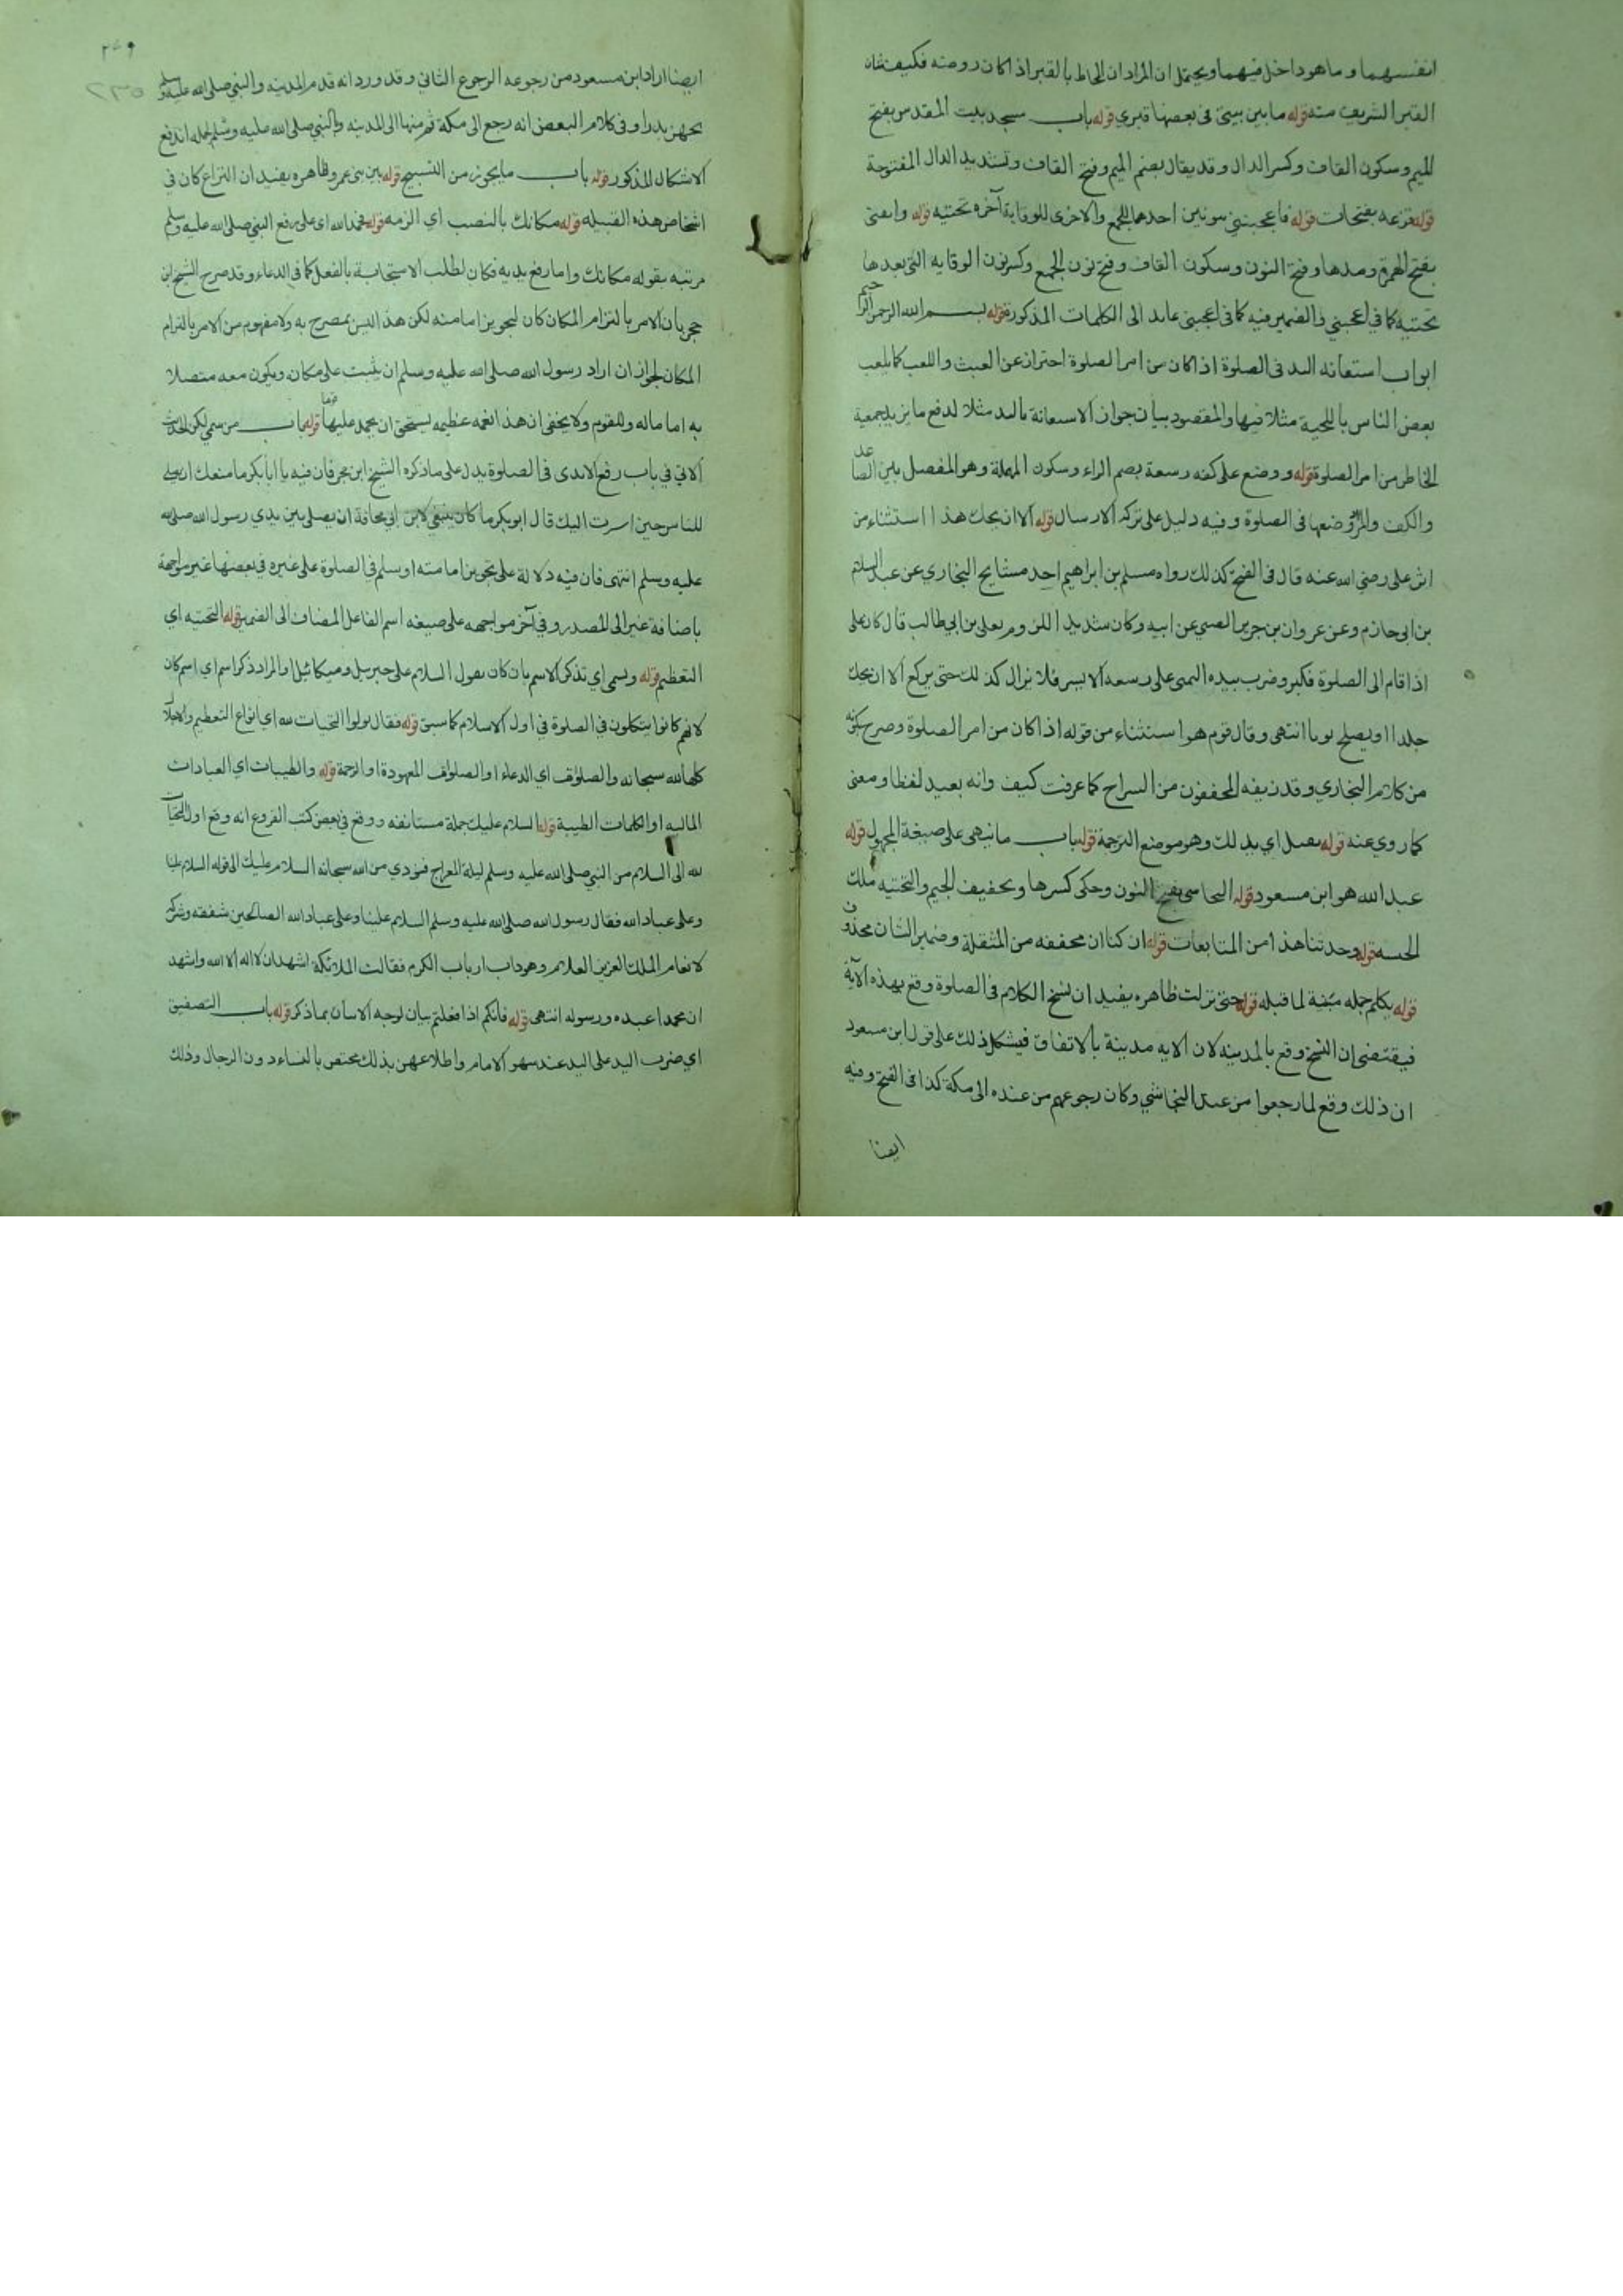 انفسهما وما هو داخل فيهما ويحتمل ان المراد ان المحاط بالقبر اذا كان روضه فكيف شان
القبر الشريف منه قوله ما بين بيتي في بعضها قبري قوله باب مسجد بيت المقدس بفتح
الميم وسكون القاف وكسر الدال وقد يقال بضم الميم وفتح القاف وتشديد الدال المفتوحة
قوله قزعه بفتحات قوله فاعجبنني بنونين احدهما للجمع والاخرى للوقاية آخره تحتيه قوله وانقني
بفتح الهمزة ومدها وفتح النون وسكون القاف وفتح نون الجمع وكسر نون الوقايه التي بعدها
تحتيه كما في اعجبني والضمير فيه كما في اعجبني عايد الى الكلمات المذكورة قوله بسم الله الرحمن الرحيم
ابواب استعانه اليد في الصلوة اذا كان من امر الصلوة احتراز عن العبث واللعب كما يلعب
بعض الناس باللحية مثلا فيها والمقصود بيان جواز الاستعانة باليد مثلا لدفع ما يزيد جمعية
الخاطر من امر الصلوة قوله ووضع على كفه رسغه بضم الراء وسكون المهملة وهو المفصل بين الصاعد
والكف والمراد وضعها في الصلوة وفيه دليل على تركه الارسال قوله الا ان يحك هذا استثناء من
اثر على رضي الله عنه قال في الفتح كذلك رواه مسلم بن ابراهيم احد مشايخ البخاري عن عبد السلام
بن ابي حازم وعن غزوان بن جرير الضبي عن ابيه وكان شديد اللزوم بعلى بن ابي طالب قال كان على
اذا قام الى الصلوة فكبر وضرب بيده اليمنى على رسغه الايسر فلا يزال كذلك حتى يركع الا ان يحك
جلدا او يصلح ثوبا انتهى وقال قوم هو استثناء من قوله اذا كان من امر الصلوة وصرح بكونه
من كلام البخاري وقد زيفه المحققون من الشراح كما عرفت كيف وانه بعيد لفظا ومعنى
كما روي عنه قوله بصل اي بد لك وهو موضع الترجمة قوله باب ما ينهى على صيغة المجهول قوله
عبد الله هو ابن مسعود قوله النجاشي بفتح النون وحكى كسرها وتخفيف الجيم والتحتيه ملك
الحبشه قوله وحدثنا هذا من المتابعات قوله ان كنا ان مخففه من المثقلة وضمير الشان محذوف
قوله يكلم جمله مبينة لما قبله قوله حتى نزلت ظاهره يفيد ان نسخ الكلام في الصلوة وقع بهذه الآية
فيقتضي ان النسخ وقع بالمدينه لان الايه مدينة بالاتفاق فيشكل ذلك على قول ابن مسعود
ان ذلك وقع لما رجعوا من عند النجاشي وكان رجوعهم من عنده الى مكة كذا في الفتح وفيه
ايضا
٢٤٩
٢٣٥
ايضا اراد ابن مسعود من رجوعه الرجوع الثاني وقد ورد انه قدم المدينه والنبي صلى الله عليه وسلم
يجهز بدرا وفي كلام البعض انه رجع الى مكة ثم منها الى المدينه والنبي صلى الله عليه وسلم اندفع
الاشكال المذكور قوله باب ما يجوز من التسبيح قوله بين بني عمرو ظاهره يفيد ان النزاع كان في
اشخاص هذه القبيله قوله مكانك بالنصب اي الزمه قوله فحمد الله اي على رفع النبي صلى الله عليه وسلم
مرتبه بقوله مكانك واما رفع يديه فكان لطلب الاستجابة بالفعل كما في الدعاء وقد صرح الشيخ ابن
حجر بان الامر بالتزام المكان كان لتجويز امامته لكن هذا ليس بمصرح به ولا مفهوم من الامر بالتزام
المكان لجواز ان اراد رسول الله صلى الله عليه وسلم ان يثبت على مكانه ويكون معه متصلا
به اما ماله وللقوم ولا يخفى ان هذا نعمه عظيمه يستحق ان يحمد عليها قوله باب من سمي لكن الحديث
الاتي في باب رفع الايدي في الصلوة يدل على ما ذكره الشيخ ابن حجر فان فيه يا ابا بكر ما منعك ان تصلي
للناس حين اشرت اليك قال ابو بكر ما كان ينبغي لابن ابي قحافة ان يصلي بين يدي رسول الله صلى الله
عليه وسلم انتهى فان فيه دلالة على تجويز امامته او سلم في الصلوة على غيره في بعضها غير مواجهة
باضافة غير الى المصدر وفي آخر مواجهه على صيغه اسم الفاعل المضاف الى الضمير قوله التحتيه اي
التعظيم قوله ويسمى اي تذكر الاسم بان كان يقول السلام على جبريل وميكائيل او المراد ذكر اسم اي اسم كان
لانهم كانوا يتكلمون في الصلوة في اول الاسلام كما سبق قوله فقال قولوا التحيات لله اي انواع التعظيم والاجلال
كلها لله سبحانه والصلوات اي الدعاء او الصلوات المعهودة او الرحمة قوله والطيبات اي العبادات
الماليه او الكلمات الطيبة قوله السلام عليك جملة مستانفه ووقع في بعض كتب الفروع انه وقع اول التحيات
لله الى السلام من النبي صلى الله عليه وسلم ليلة المعراج فنودي من الله سبحانه السلام عليك الى قوله السلام علينا
وعلى عباد الله فقال رسول الله صلى الله عليه وسلم السلام علينا وعلى عباد الله الصالحين شفقه وشركه
لانعام الملك العزيز العلام وهو داب ارباب الكرم فقالت الملائكة اشهد ان لا اله الا الله واشهد
ان محمدا عبده ورسوله انتهى قوله فانكم اذا فعلتم بيان لوجه الاتيان بما ذكر قوله باب التصفيق
اي ضرب اليد على اليد عند سهو الامام واطلاعهن بذلك مختص بالنساء دون الرجال وذلك